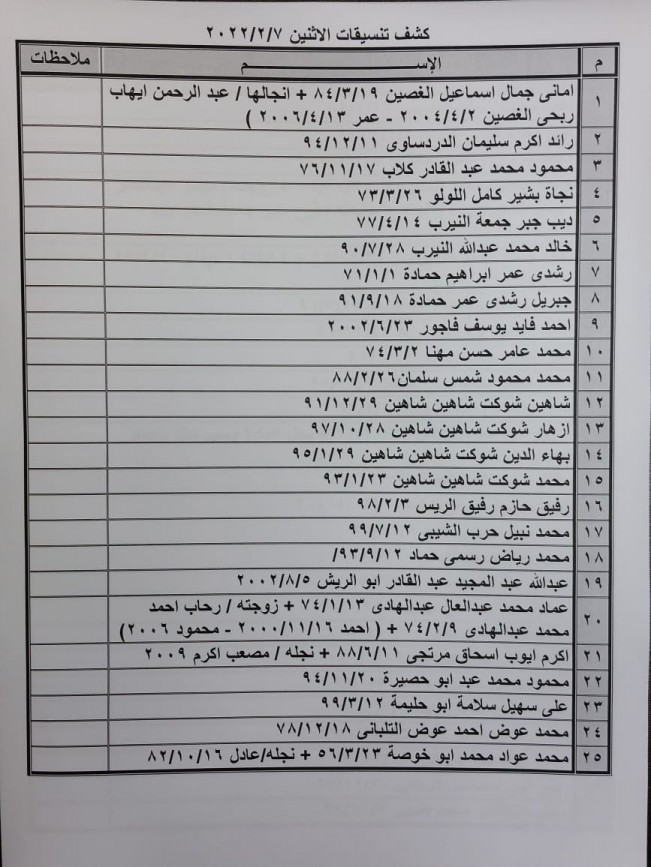 كشف تنسيقات الاثنين ٢٠٢٢/٢/٧
م الإســـــــــم ملاحظات
١ امانى جمال اسماعيل الغصين ٨٤/٣/١٩ + انجالها / عبد الرحمن ايهاب
ربحى الغصين ٢٠٠٤/٤/٢ - عمر ٢٠٠٦/٤/١٣ )
٢ رائد اكرم سليمان الدردساوى ٩٤/١٢/١١
٣ محمود محمد عبد القادر كلاب ٧٦/١١/١٧
٤ نجاة بشير كامل اللولو ٧٣/٣/٢٦
٥ ديب جبر جمعة النيرب ٧٧/٤/١٤
٦ خالد محمد عبدالله النيرب ٩٠/٧/٢٨
٧ رشدى عمر ابراهيم حمادة ٧١/١/١
٨ جبريل رشدى عمر حمادة ٩١/٩/١٨
٩ احمد فايد يوسف فاجور ٢٠٠٢/٦/٢٣
١٠ محمد عامر حسن مهنا ٧٤/٣/٢
١١ محمد محمود شمس سلمان٨٨/٢/٢٦
١٢ شاهين شوكت شاهين شاهين ٩١/١٢/٢٩
١٣ ازهار شوكت شاهين شاهين ٩٧/١٠/٢٨
١٤ بهاء الدين شوكت شاهين شاهين ٩٥/١/٢٩
١٥ محمد شوكت شاهين شاهين ٩٣/١/٢٣
١٦ رفيق حازم رفيق الريس ٩٨/٢/٣
١٧ محمد نبيل حرب الشيبى ٩٩/٧/١٢
١٨ محمد رياض رسمى حماد ٩٣/٩/١٢/
١٩ عبدالله عبد المجيد عبد القادر ابو الريش ٢٠٠٢/٨/٥
٢٠ عماد محمد عبدالعال عبدالهادى ٧٤/١/١٣ + زوجته / رحاب احمد
محمد عبدالهادى ٧٤/٢/٩ + ( احمد ٢٠٠٠/١١/١٦ - محمود ٢٠٠٦)
٢١ اكرم ايوب اسحاق مرتجى ٨٨/٦/١١ + نجله / مصعب اكرم ٢٠٠٩
٢٢ محمود محمد عبد ابو حصيرة ٩٤/١١/٢٠
٢٣ على سهيل سلامة ابو حليمة ٩٩/٣/١٢
٢٤ محمد عوض احمد عوض التلبانى ٧٨/١٢/١٨
٢٥ محمد عواد محمد ابو خوصة ٥٦/٣/٢٣ + نجله/عادل ٨٢/١٠/١٦